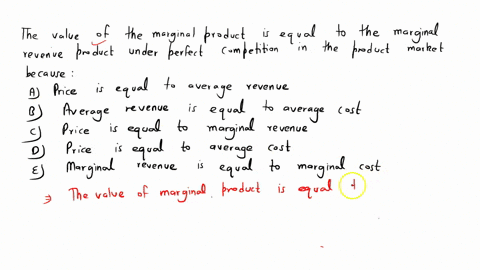 The value of the marginal product is equal to the marginal
revenue product under perfect competition in the product market
because :
A) Price is equal to average revenue
B) Average revenue is equal to average cost
C) Price is equal to marginal revenue
D) Price is equal to average cost
E) Marginal revenue is equal to marginal cost
⇒ The value of marginal product is equal t